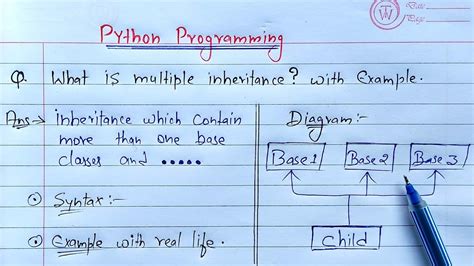 Python Programming
Date
Page
Q. What is multiple inheritance? with Example.
Ans → inheritance which contain
more than one base
classes and .....
Syntax :-
Example with real life.
Diagram:-
Base 1
Base 2
Base 3
Child